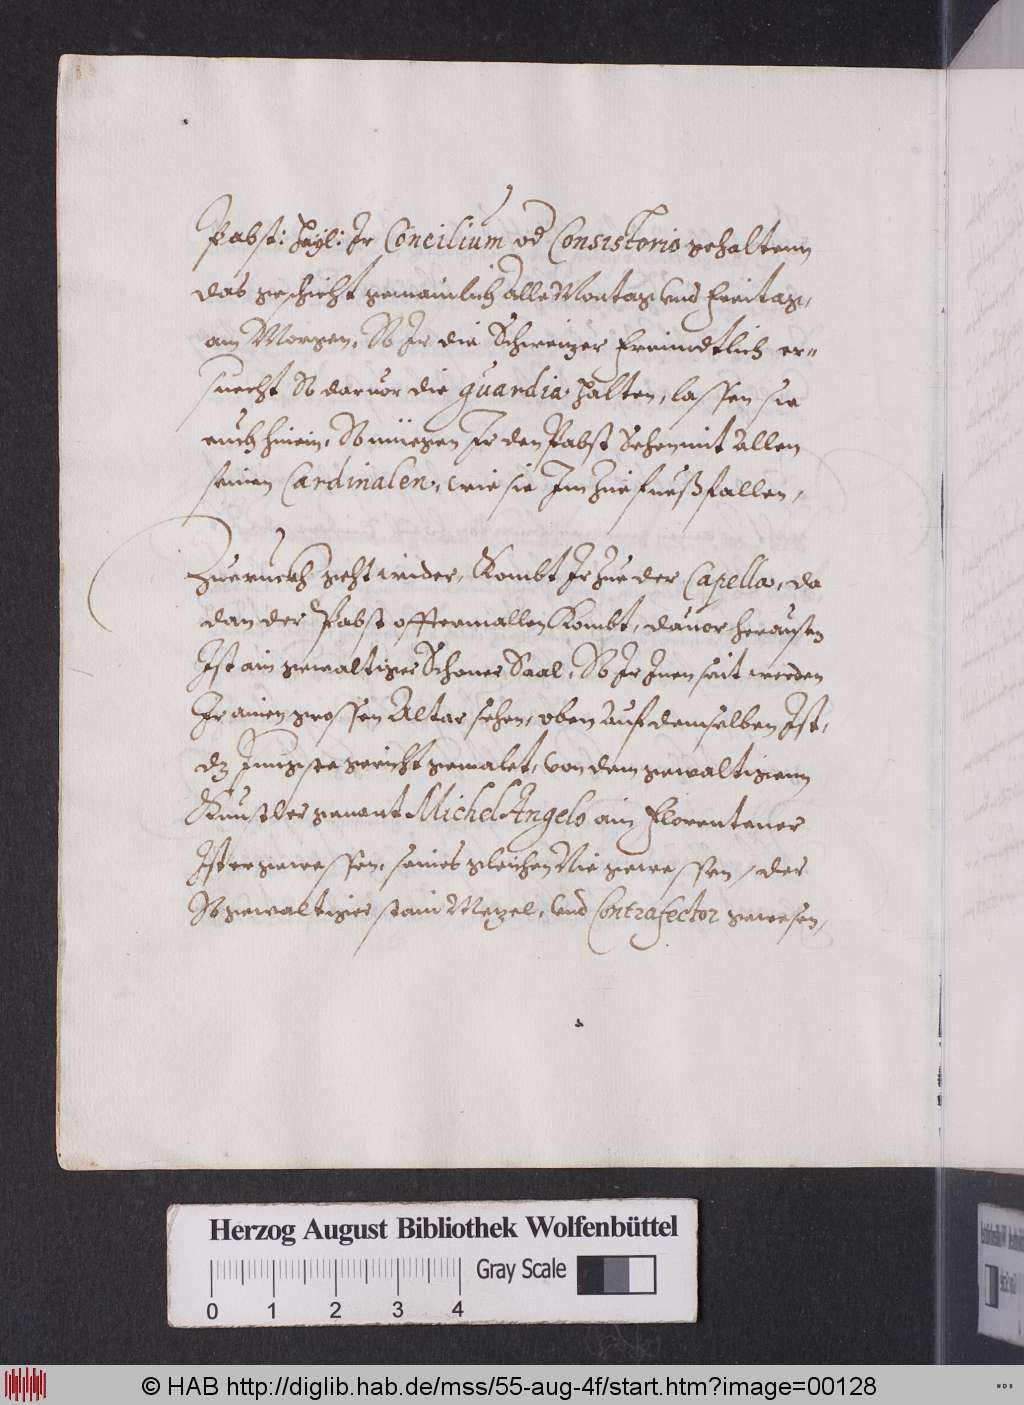 Pabst: Heyl: Ir Concilium od Consistorio gehaltenn
das geschicht gemainlich Alle Montag Vnd Freitag,
am Morgen, So Ir die Schweizer Freindtlich er=
suecht So daruor die guardia halten, lassen sie
euch hinein, So müegen Ir den Pabst Sehen mit Allen
seinen Cardinalen, wie sie Im Zue fueß fallen,
Zueruckh geht wider, Kombt Ir Zue der Capella, da
dan der Pabst offtermallen Kombt, dauor heraussen
Ist ain gewaltiger Schoner Saal, So Ir Inen seit werden
Ir ainen grossen Altar sehen, oben Auf demselben Ist,
dz Jungste gericht gemalet, Von dem gewaltigenn
Kunstler genant Michel Angelo ain Florentaner
Ist er gewessen, seines gleichen Nie gewessen, der
So gewaltiger stain Mezel, Vnd Contrafector gewesen,
Herzog August Bibliothek Wolfenbüttel
Gray Scale
0 1 2 3 4
© HAB http://diglib.hab.de/mss/55-aug-4f/start.htm?image=00128